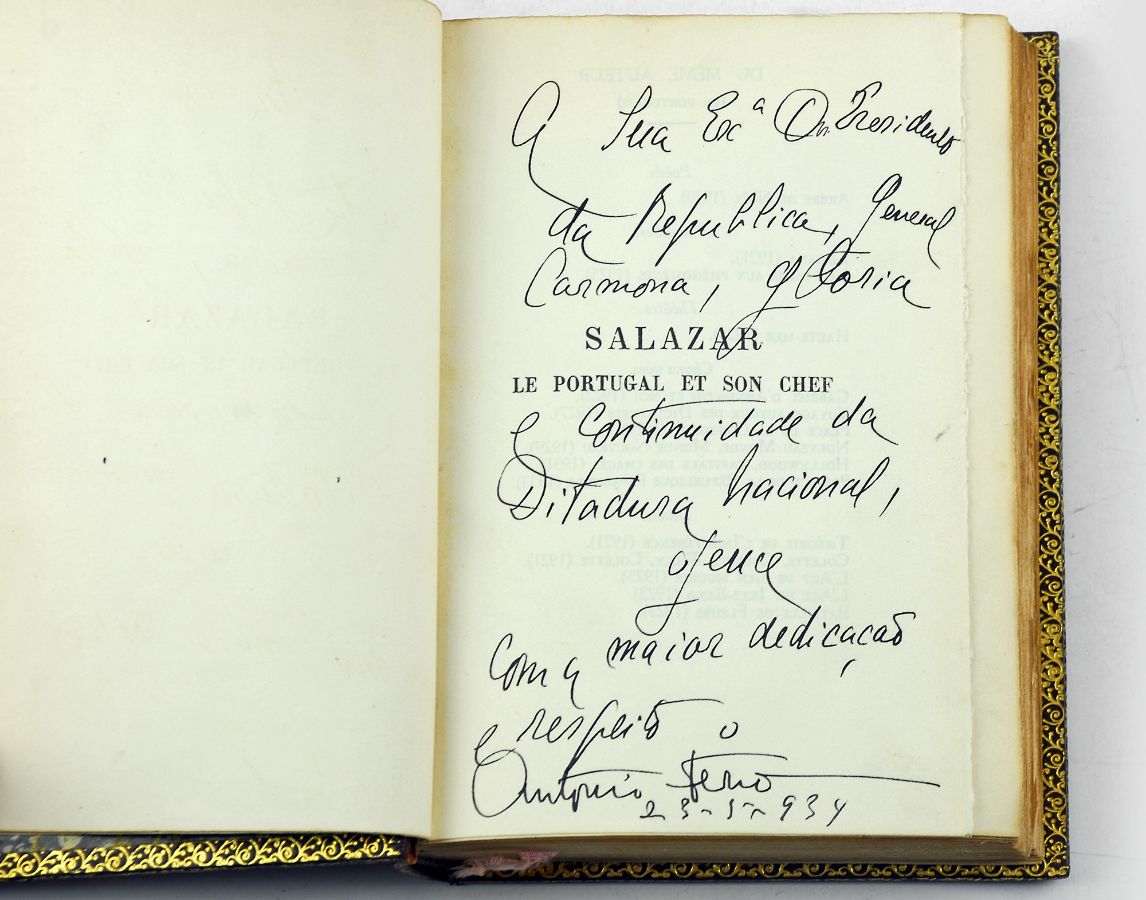 A Sua Exª O Sr. Presidente
da Republica, General
Carmona, gloria
SALAZAR
LE PORTUGAL ET SON CHEF
e continuidade da
Ditadura Nacional,
oferece
com a maior dedicação
e respeito o
António Ferro
934